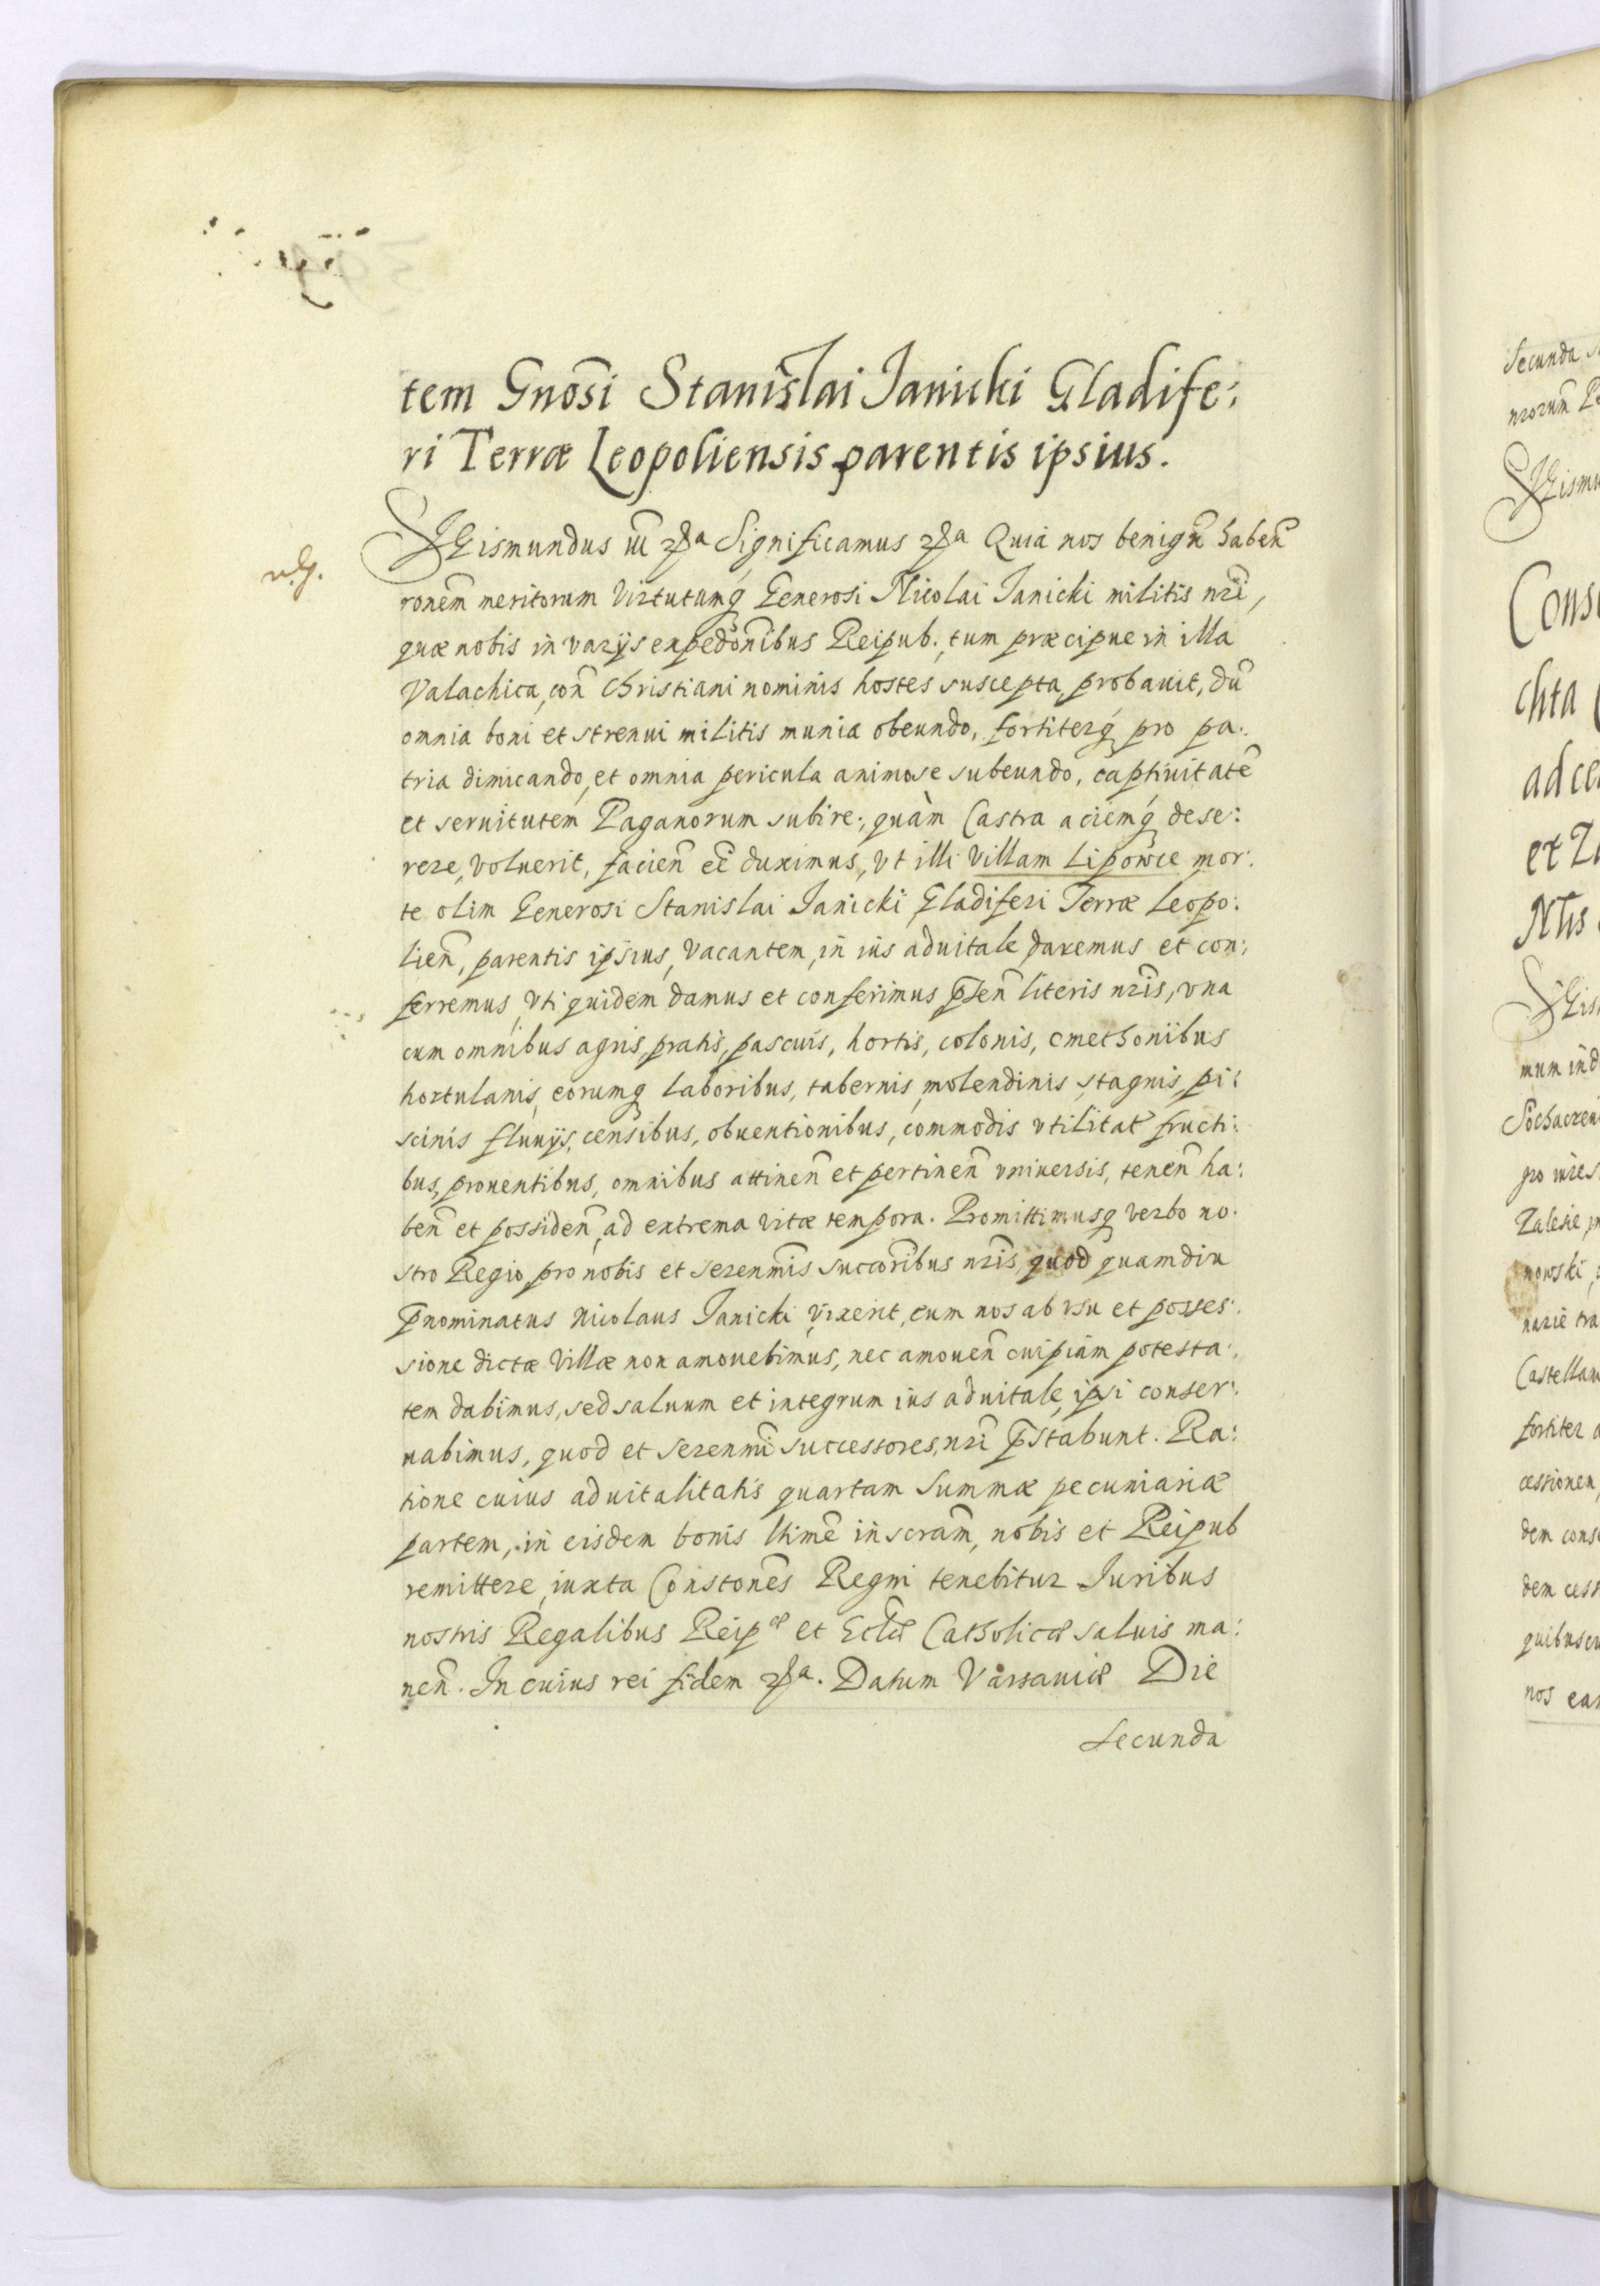 tem Gnosi Stanislai Janicki Gladife:
ri Terræ Leopoliensis parentis ipsius.
SIGismundus iii Significamus Quia nos benign haben
ronem meritorum virtutumq Generosi Nicolai Janicki militis nri,
quæ nobis in varijs expedonibus Reipub., tum præcipue in illa
Valachica, con Christiani nominis hostes suscepta, probauit, du
omnia boni et strenui militis munia obeundo, fortiterq pro pa:
tria dimicando, et omnia pericula animose subeundo, captiuitate
et seruitutem Paganorum subire, quàm Castra aciemq dese:
rere, voluerit, facien ee duximus, vt illi villam Lipowce mor:
te olim Generosi Stanislai Janicki Gladiferi Terræ Leopo:
lien, parentis ipsius, vacantem, in ius aduitale daremus et con:
ferremus vti quidem damus et conferimus psen literis nris, vna
cum omnibus agris, pratis, pascuis, hortis, colonis, cmethonibus
hortulanis, eorumq laboribus, tabernis, molendinis, stagnis, pi:
scinis fluuijs, censibus, obuentionibus, commodis vtilitat fructi:
bus, prouentibus, omnibus attinen et pertinen vniuersis, tenen ha:
ben et possiden, ad extrema vitæ tempora. Promittimusq verbo no:
stro Regio, pro nobis et serenmis succoribus nris, quod quamdiu
pnominatus Nicolaus Janicki vixerit, eum nos ab vsu et posses:
sione dictæ villæ non amouebimus, nec amouen cuipiam potesta:
tem dabimus, sed saluum et integrum ius aduitale, ipsi conser:
uabimus, quod et serenmi successores, nri pstabunt. Ra:
tione cuius aduitalitatis quartam summæ pecuniariæ
partem, in eisdem bonis ltime inscram, nobis et Reipub
remittere, iuxta Constones Regni tenebitur Juribus
nostris Regalibus Reipæ et Eclæ Catholicæ saluis ma:
nen. In cuius rei fidem. Datum Varsauiæ Die
secunda
secunda
SIGismu
Cons
chta
ad ce
et
Ntis
SIGis
mum ind
Sochaczen
Zalesie
nowski
narie tra
Castellan
fortiter
cessionem
dem cons
dem cess
quibuscu
nos ean